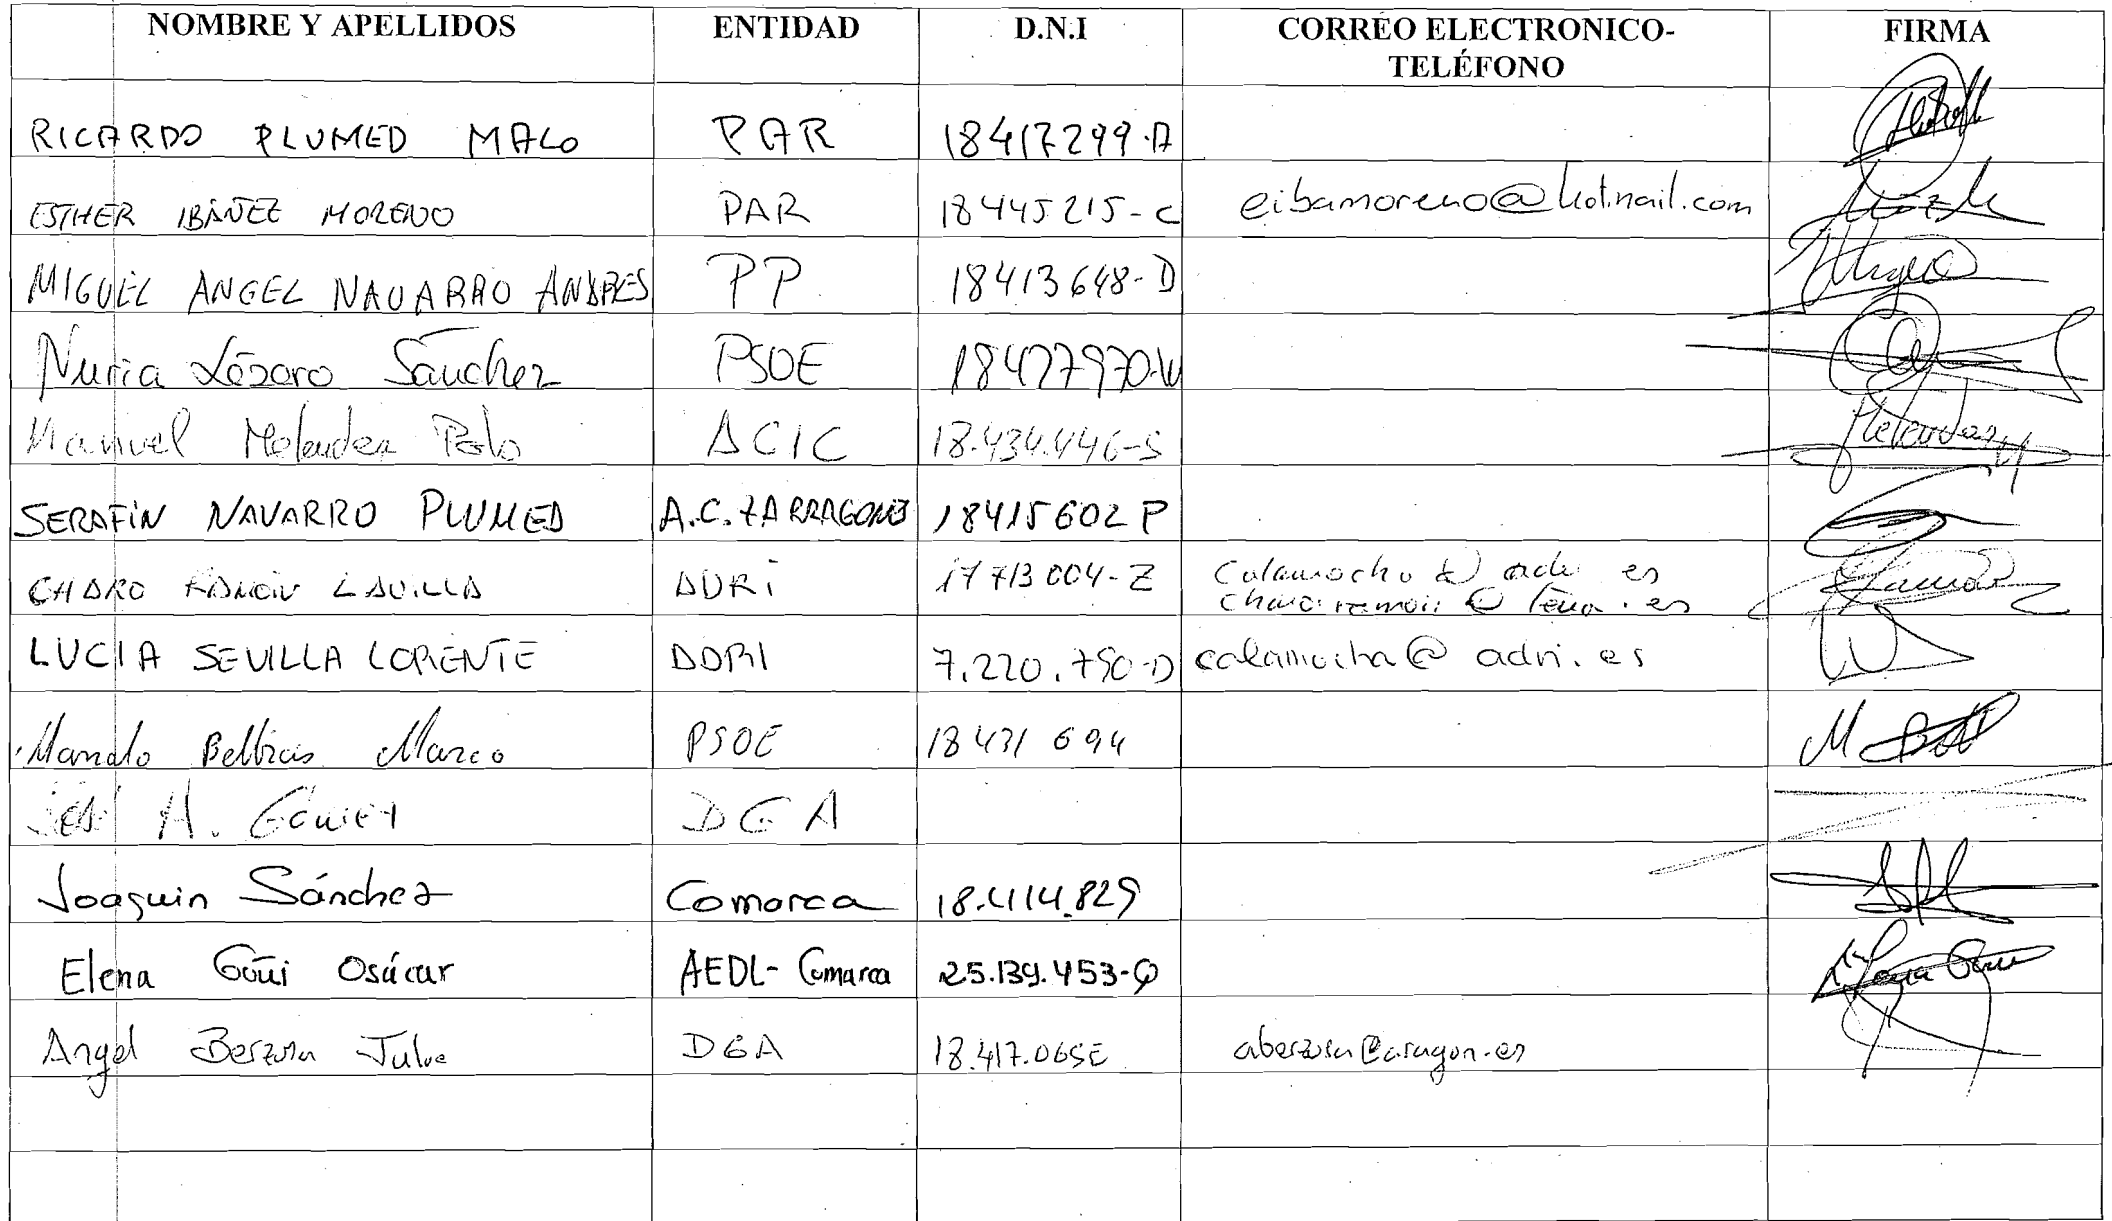 NOMBRE Y APELLIDOS ENTIDAD D.N.I CORREO ELECTRONICO-TELÉFONO FIRMA
RICARDO PLUMED MALO PAR 18417299-A
ESTHER IBAÑEZ MORENO PAR 18445215-C eibamoreno@hotmail.com
MIGUEL ANGEL NAVARRO ANDRES PP 18413648-D
Nuria Lázaro Sánchez PSOE 18427970-W
Manuel Melendez Polo ACIC 18.434.446-S Melendez
SERAFIN NAVARRO PLUMED A.C. 18415602 P
CHARO RAMON LAVILLA ADRI 17713004-Z calamocha @ adri es
LUCIA SEVILLA LORENTE ADRI 7.220.750-D calamocha@ adri.es
Manolo Marco PSOE 18431694
José A. Gómez DGA
Joaquin Sánchez Comarca 18.414.829
Elena Goñi Osácar AEDL-Comarca 25.139.453-Q
Angel Berzosa Julve DGA 18.417.065E aberzosa@aragon.es